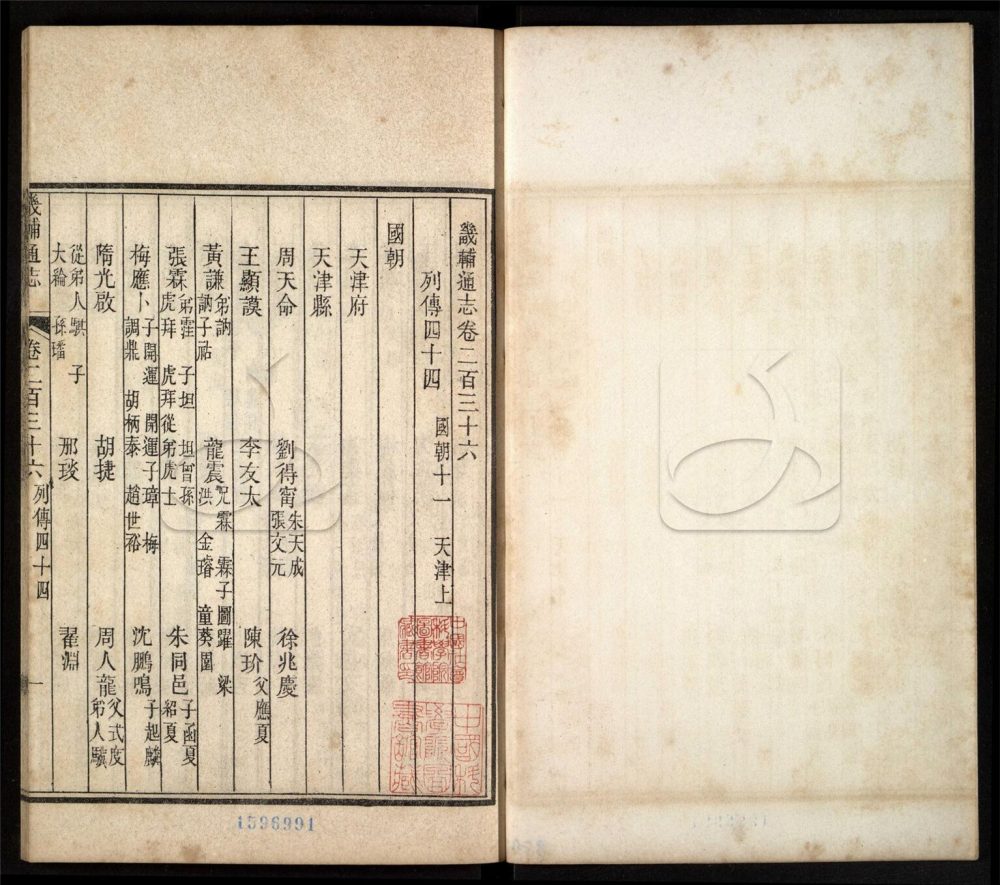 畿輔通志卷二百三十六
列傳四十四 國朝十一 天津上
國朝
天津府
天津縣
周天命 劉得甯 朱天成 張文元 徐兆慶
王顯謨 李友太 陳玠 父應夏
黃謙 弟訥 訥子祐 龍震 兄霖 霖子圖躍 洪 金璿 童葵園 梁
張霖 弟霔 子坦 坦曾孫虎拜 虎拜從弟虎士 朱同邑 子函夏 紹夏
梅應卜 子開運 開運子璋 梅調鼎 胡柄泰 趙世裕 沈鵬鳴 子起麟
隋光啟 胡捷 周人龍 父式度 弟人驥
從弟人騏 子大綸 孫璠 邢琰 翟淵
畿輔通志 卷二百三十六 列傳四十四 一
1596991